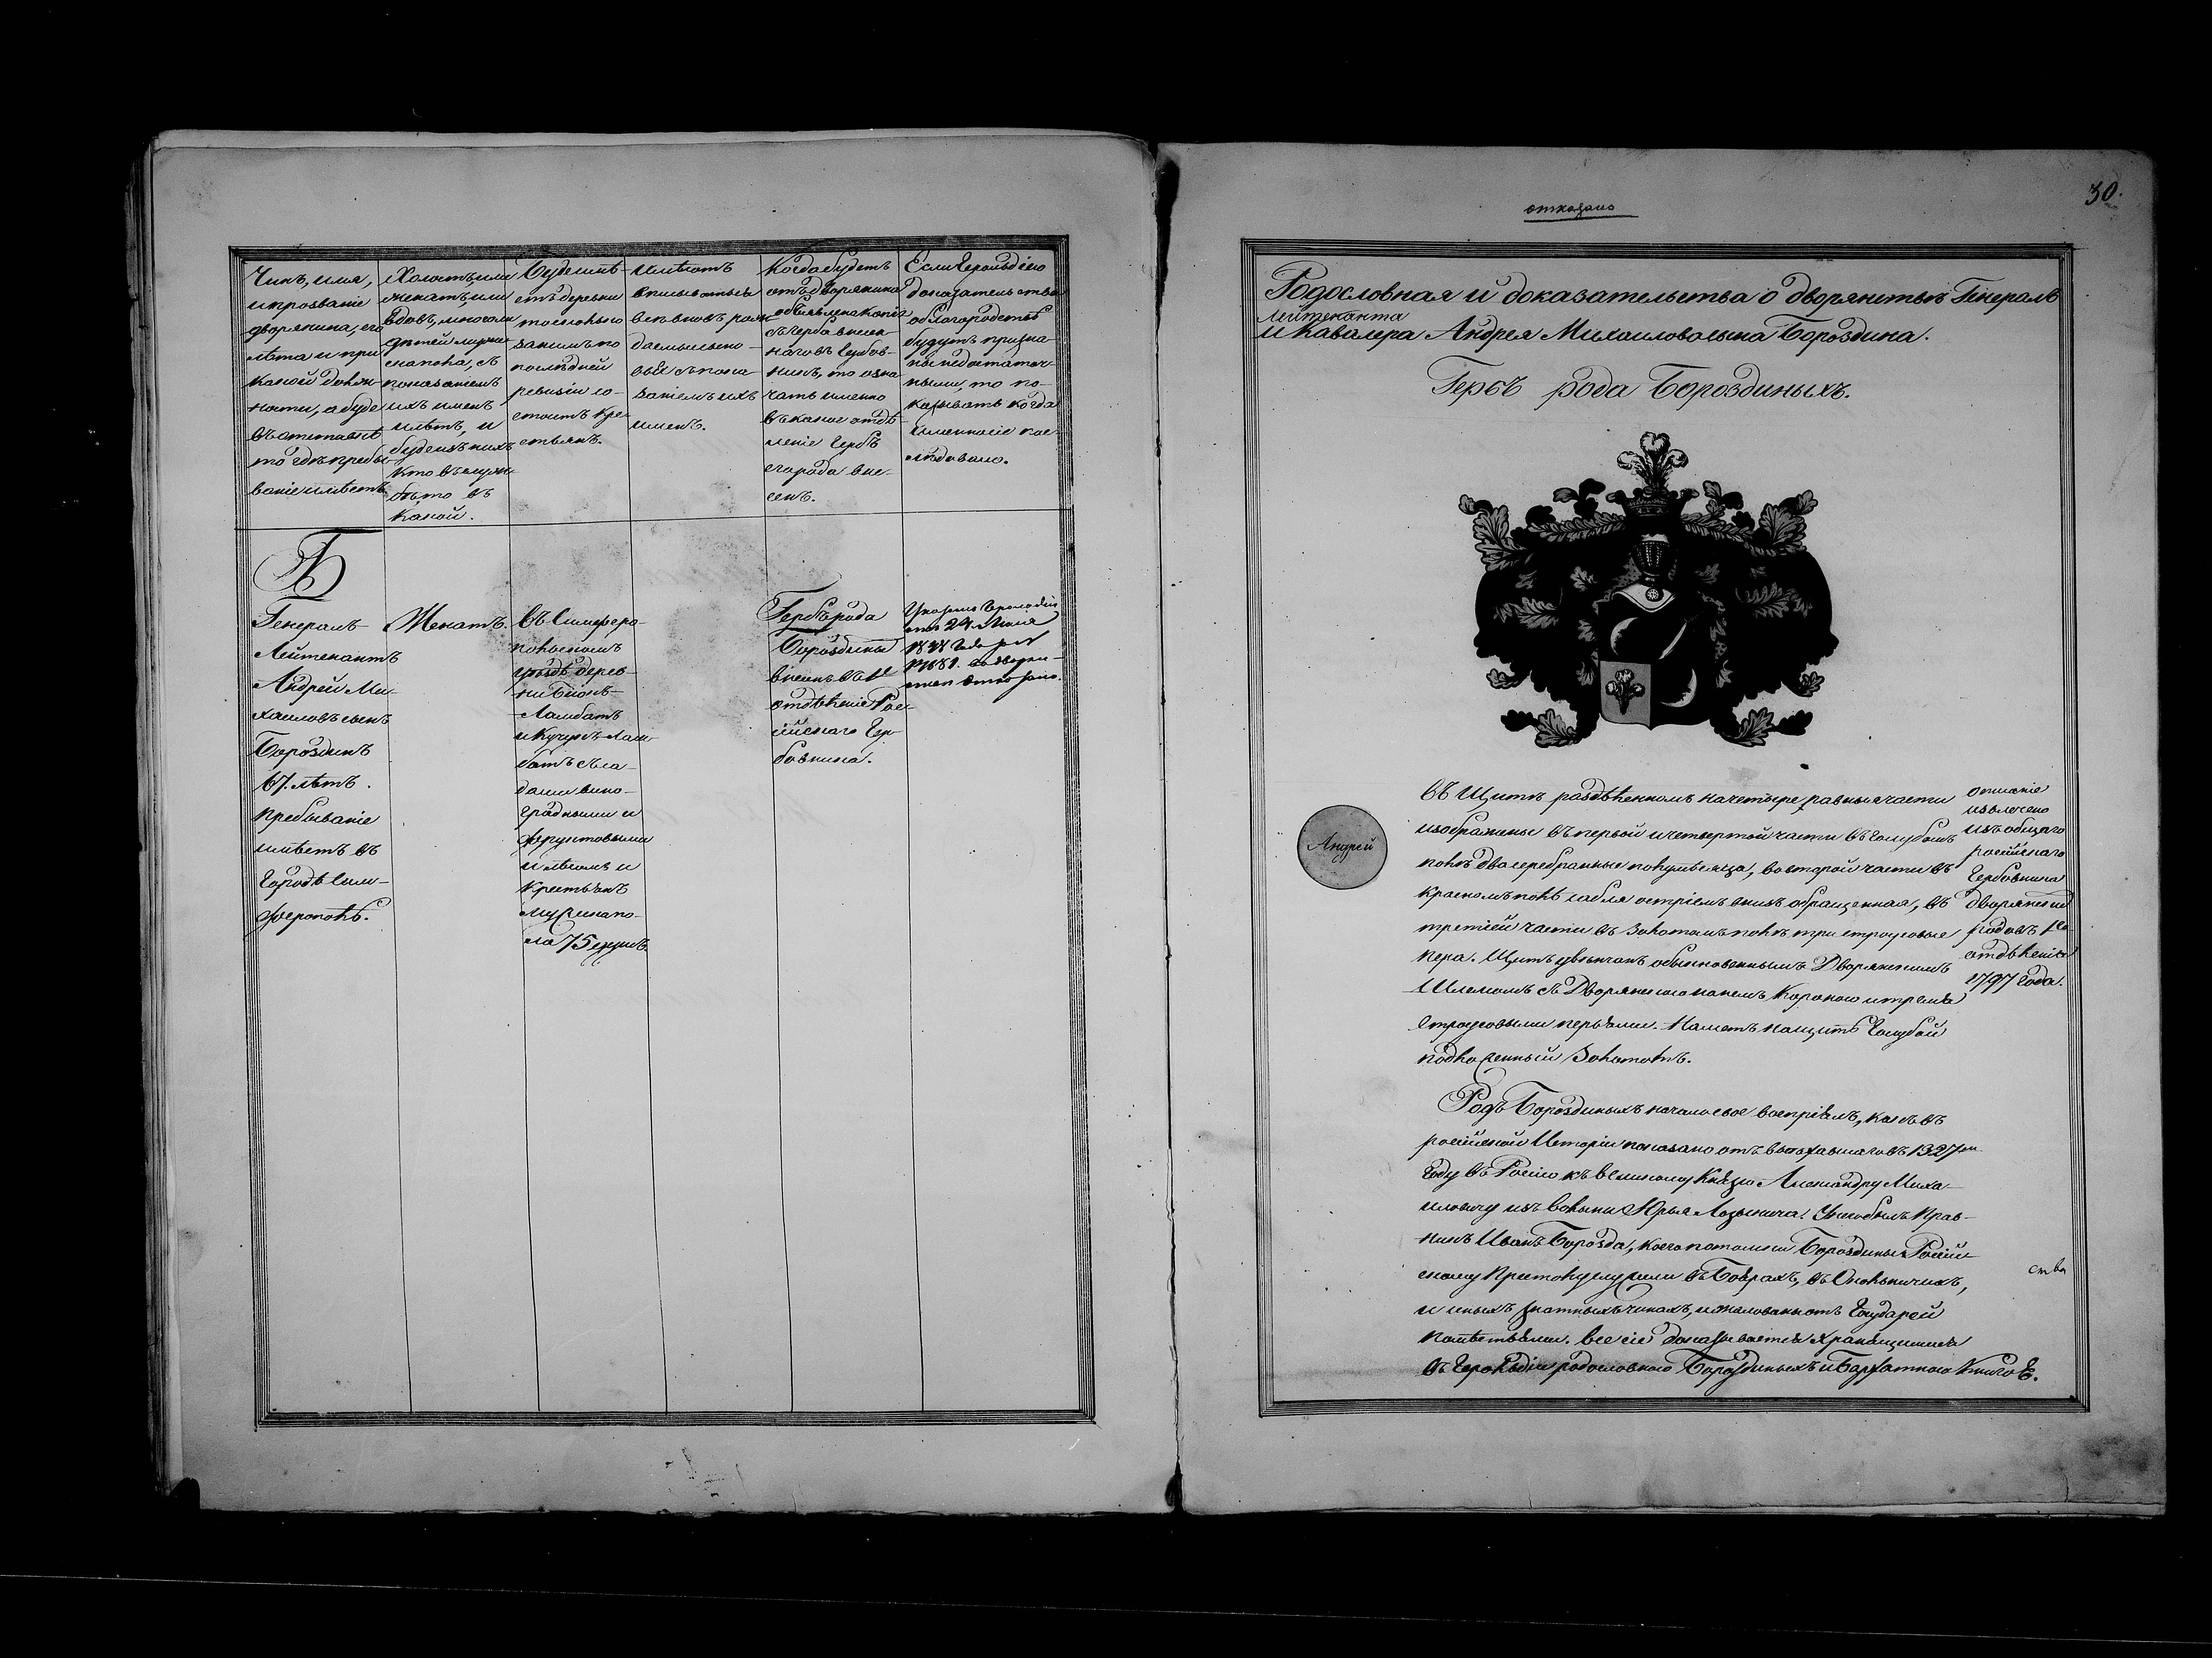 Чинъ, имя,
и прозваніе
дворянина, его
лѣта и при
какой долж-
ности, а буде
въ отставкѣ
то гдѣ пребы-
ваніе имѣетъ
Холостъ, или
женатъ, или
вдовъ, много ли
дѣтей мужес-
ка пола, съ
показаніемъ
ихъ именъ
лѣтъ, и
буде изъ нихъ
кто въ служ-
бѣ, то въ
какой.
Буде имѣ-
етъ деревни
то сколько
за нимъ по
послѣдней
ревизіи со-
стоитъ кре-
стьянъ.
Имѣютъ
вписываться
вс вновь рож-
даемые
съ пока-
заніемъ ихъ
именъ.
Когда будетъ
отъ дворянина
объявлена копія
съ герба внесен-
наго въ Гербов-
никъ, то озна-
чать именно
въ какое отдѣ-
леніе Гербъ
его рода вне-
сенъ.
Если Герольдіею
доказательства
о благородствѣ
будутъ призна-
ны недостаточ-
ными, то по-
казывать когда
именно сіе пос-
лѣдовало.
Б
Генералъ-
Лейтенантъ
Андрей Ми-
хаиловъ сынъ
Бороздинъ
67. лѣтъ.
Пребываніе
имѣетъ въ
Городѣ Сим-
ферополѣ.
Женатъ.
Въ Симферо-
польскомъ
уѣздѣ дерев-
ни Біюкъ-
Ламбатъ
и Кучукъ-Лам-
батъ съ са-
дами вино-
градными и
фруктовыми
и лѣсомъ и
крестьянъ
мужска по-
ла 75 душъ.
Гербъ рода
Бороздины
внесенъ въ 1е
отдѣленіе Рос-
сійскаго Гер-
бовника.
Указомъ Герольдіи
отъ 24 Июня
1844 Года за №
17681. въ дворян-
ствѣ отказано.
30.
отказано
Родословная и доказательства о дворянствѣ Генералъ
Лейтенанта
и Кавалера Андрея Михаилова сына Бороздина.
Гербъ рода Бороздиныхъ.
Андрей
Въ Щитѣ раздѣленномъ на четыре равныя части
изображены въ первой и четвертой части въ голубомъ
полѣ два серебряные полумѣсяца, во второй части въ
красномъ полѣ сабля остріемъ внизъ обращенная, въ
третіей части въ золотомъ полѣ три строусовые
пера. Щитъ увѣнчанъ обыкновеннымъ Дворянскимъ
Шлемомъ съ Дворянскою на немъ Короною и тремя
Строусовыми перьями. Наметъ на щитѣ голубой
подложенный Золотомъ.
Описаніе
извлечено
изъ общаго
россійскаго
Гербовника
дворянскихъ
родовъ 1го
отдѣленія
1797 года.
Родъ Бороздиныхъ начало свое воспріялъ, какъ въ
россійской Исторіи показано отъ выѣхавшаго въ 1327мъ
Году въ Россію къ Великому Князю Александру Миха-
иловичу изъ Волыни Юрья Лозынича. У него былъ Прав-
нукъ Иванъ Борозда, коего потомки Бороздины Россій-
скому Престолу служили въ Боярахъ, въ Окольничихъ,
и иныхъ знатныхъ чинахъ, и жалованы отъ Государей
помѣстьями. Все сіе доказывается хранящимися
въ Герольдіи родословною Бороздиныхъ и Бархатною Книгою.
ства